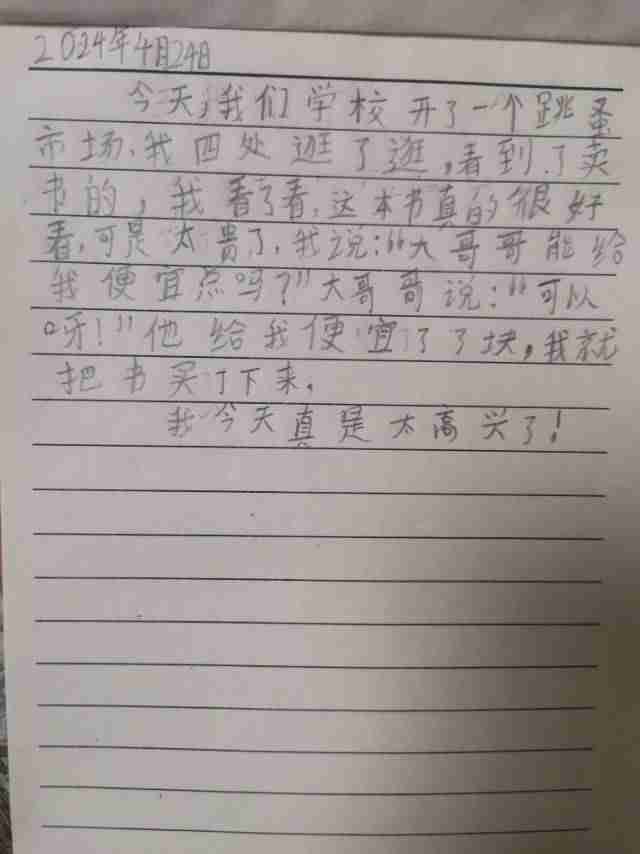 2024年4月24日
今天,我们学校开了一个跳蚤
市场,我四处逛了逛,看到了卖
书的,我看了看,这本书真的很好
看,可是太贵了,我说:“大哥哥能给
我便宜点吗?”大哥哥说:“可以
呀!”他给我便宜了了块,我就
把书买了下来。
我今天真是太高兴了!